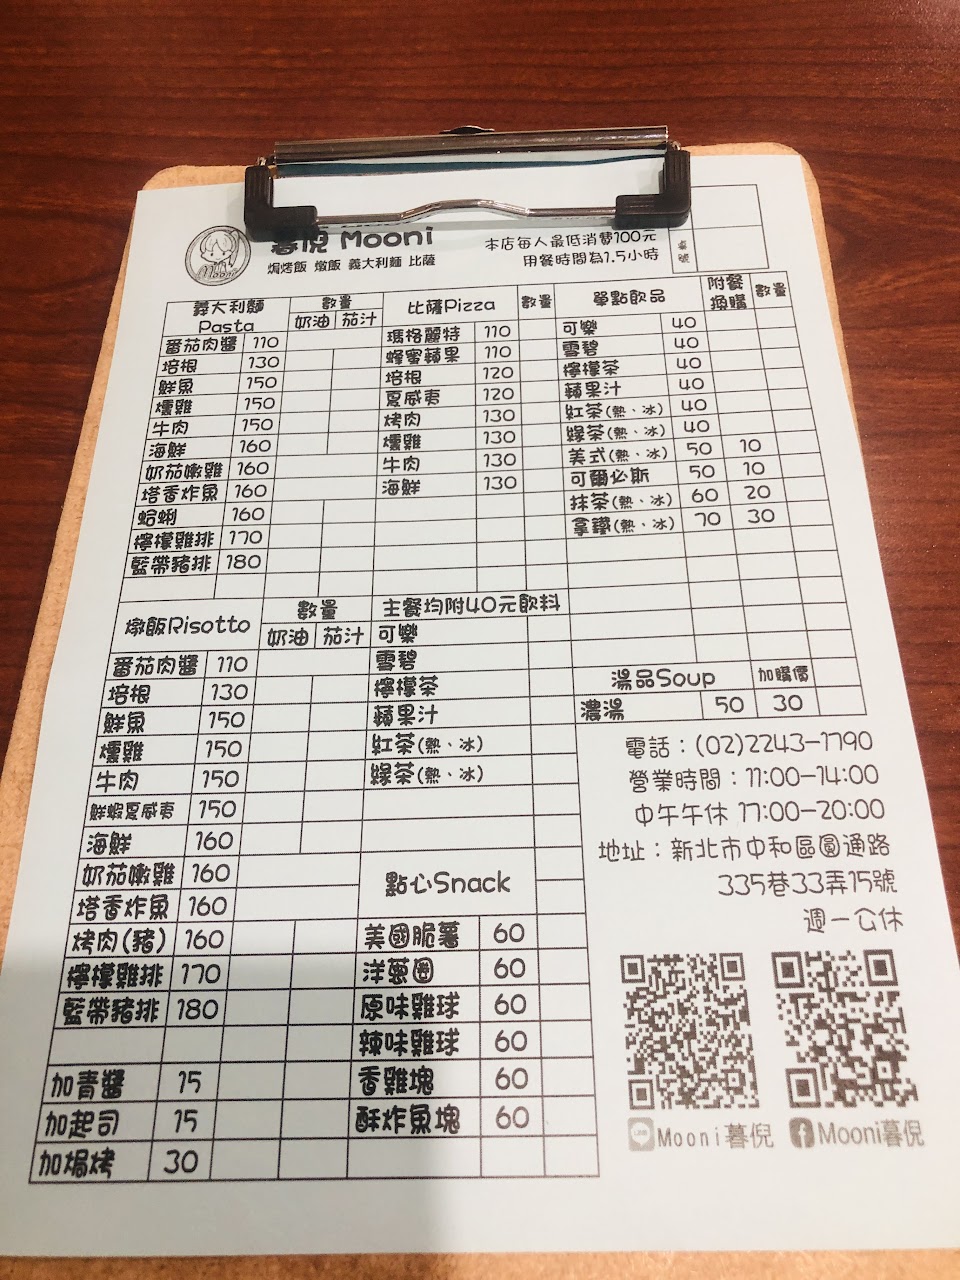 暮倪 Mooni
焗烤飯 燉飯 義大利麵 比薩
Mooni
本店每人最低消費100元
用餐時間為1.5小時
桌號
義大利麵 Pasta 數量 奶油 茄汁
番茄肉醬 110
培根 130
鮮魚 150
燻雞 150
牛肉 150
海鮮 160
奶茄嫩雞 160
塔香炸魚 160
蛤蜊 160
檸檬雞排 170
藍帶豬排 180
比薩Pizza 數量
瑪格麗特 110
蜂蜜蘋果 110
培根 120
夏威夷 120
烤肉 130
燻雞 130
牛肉 130
海鮮 130
單點飲品 附餐換購 數量
可樂 40
雪碧 40
檸檬茶 40
蘋果汁 40
紅茶(熱、冰) 40
綠茶(熱、冰) 40
美式(熱、冰) 50 10
可爾必斯 50 10
抹茶(熱、冰) 60 20
拿鐵(熱、冰) 70 30
燉飯Risotto 數量 奶油 茄汁
番茄肉醬 110
培根 130
鮮魚 150
燻雞 150
牛肉 150
鮮蝦夏威夷 150
海鮮 160
奶茄嫩雞 160
塔香炸魚 160
烤肉(豬) 160
檸檬雞排 170
藍帶豬排 180
加青醬 15
加起司 15
加焗烤 30
主餐均附40元飲料
可樂
雪碧
檸檬茶
蘋果汁
紅茶(熱、冰)
綠茶(熱、冰)
點心Snack
美國脆薯 60
洋蔥圈 60
原味雞球 60
辣味雞球 60
香雞塊 60
酥炸魚塊 60
湯品Soup 加購價
濃湯 50 30
電話：(02)2243-1790
營業時間：11:00-14:00
中午午休 17:00-20:00
地址：新北市中和區圓通路
335巷33弄15號
週一公休
LINE Mooni暮倪
Mooni暮倪